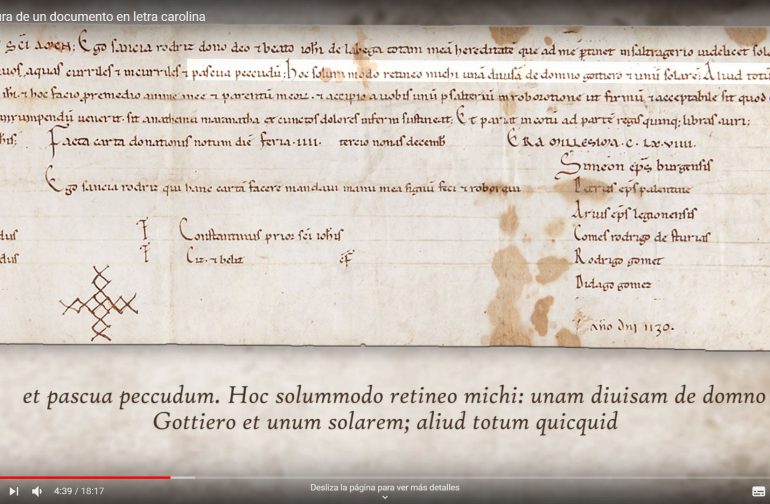 ura de un documento en letra carolina
sci amen: Ego sancia rodriz dono deo et beato iohi de labega totam meā hereditatē que ad me ꝑtinet in saltragerio uidelicet sol
aquas curriles et incurriles et pascua peccudū: hoc solum modo retineo michi unā diuisā de domno gottiero et unū solarē: Aliud totū
et hoc facio et accipio a uobis unū psalteriū in roborotione ut firmū et acceptabile sit quod
uenerit. sit anathema maranatha et cunctos dolores inferni sustineat: Et pariat in cotū ad partē regis quinq; libras auri:
Facta carta donationis notum diē feria .IIII. tercio nonis decemb ERA MILLESIMA. C. LX.VIIII.
Simeon eps burgensis
Ego sancia rodriz qui hanc cartā facere mandaui manu mea signū feci et roboraui Petrus eps palentine
Arius eps legionensis
dus Constantinus prior sci iohis Comes rodrigo de sturias
dus Ciz. et beliz Rodrigo gomez
Didago gomez
año dni 1130.
et pascua peccudum. Hoc solummodo retineo michi: unam diuisam de domno
Gottiero et unum solarem; aliud totum quicquid
4:39 / 18:17
Desliza la página para ver más detalles